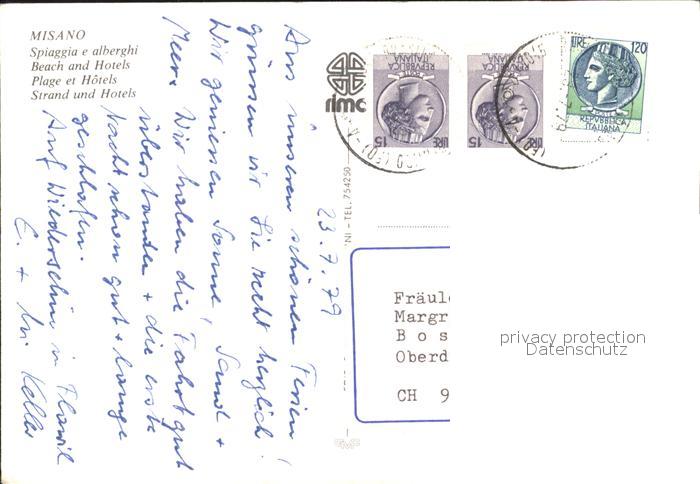 MISANO
Spiaggia e alberghi
Beach and Hotels
Plage et Hôtels
Strand und Hotels
23.7.79
Aus unseren schönen Ferien
grüssen wir Sie recht herzlich!
Wir geniessen Sonne, Sand +
Meer. Wir haben die Fahrt gut
überstanden + die erste
Nacht schon gut + lange
geschlafen.
Auf Wiedersehn in Flawil
E. + Keller
rimc
NI - TEL. 754250
LIRE 15
REPVBBLICA
ITALIANA
LIRE 15
REPVBBLICA
ITALIANA
LIRE 120
REPVBBLICA
ITALIANA
Fräul
Margr
Bos
Oberd
CH 9
privacy protection
Datenschutz